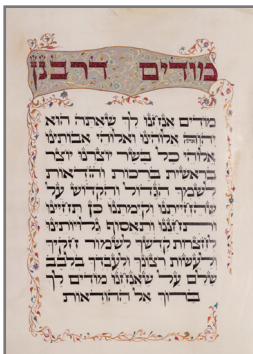 מודים דרבנן
מודים אנחנו לך שאתה הוא
יהוה אלוהינו ואלוהי אבותינו
אלוהי כל בשר יוצרנו יוצר
בראשית ברכות והודאות
לשמך הגדול והקדוש על
שהחייתנו וקימתנו כן תחיינו
ותחננו ותאסוף גלויותינו
לחצרות קדשך לשמור חקיך
ולעשות רצונך ולעבדך בלבב
שלם על שאנחנו מודים לך
ברוך אל ההודאות